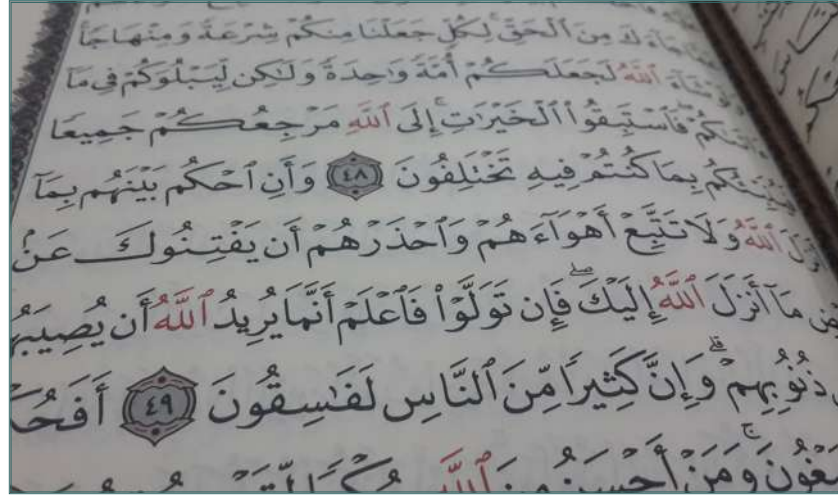 جَآءَكَ مِنَ ٱلْحَقِّ ۚ لِكُلٍّ جَعَلْنَا مِنكُمْ شِرْعَةً وَمِنْهَاجًا
وَلَوْ شَآءَ ٱللَّهُ لَجَعَلَكُمْ أُمَّةً وَٰحِدَةً وَلَٰكِن لِّيَبْلُوَكُمْ فِى مَآ
ءَاتَىٰكُمْ ۖ فَٱسْتَبِقُوا۟ ٱلْخَيْرَٰتِ ۚ إِلَى ٱللَّهِ مَرْجِعُكُمْ جَمِيعًا
فَيُنَبِّئُكُم بِمَا كُنتُمْ فِيهِ تَخْتَلِفُونَ ٤٨ وَأَنِ ٱحْكُم بَيْنَهُم بِمَآ
أَنزَلَ ٱللَّهُ وَلَا تَتَّبِعْ أَهْوَآءَهُمْ وَٱحْذَرْهُمْ أَن يَفْتِنُوكَ عَنۢ
مَآ أَنزَلَ ٱللَّهُ إِلَيْكَ ۖ فَإِن تَوَلَّوْا۟ فَٱعْلَمْ أَنَّمَا يُرِيدُ ٱللَّهُ أَن
ذُنُوبِهِمْ ۗ وَإِنَّ كَثِيرًا مِّنَ ٱلنَّاسِ لَفَٰسِقُونَ ٤٩
وَمَنْ أَحْسَنُ مِنَ ٱللَّهِ